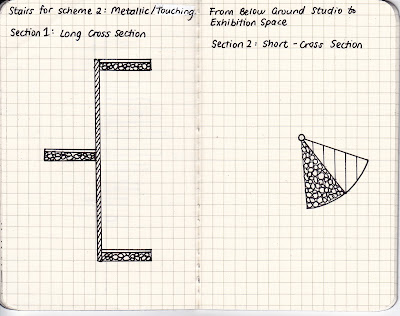 Stairs for scheme 2: Metallic/Touching.
Section 1: Long Cross Section
From Below Ground Studio to
Exhibition Space
Section 2: Short - Cross Section